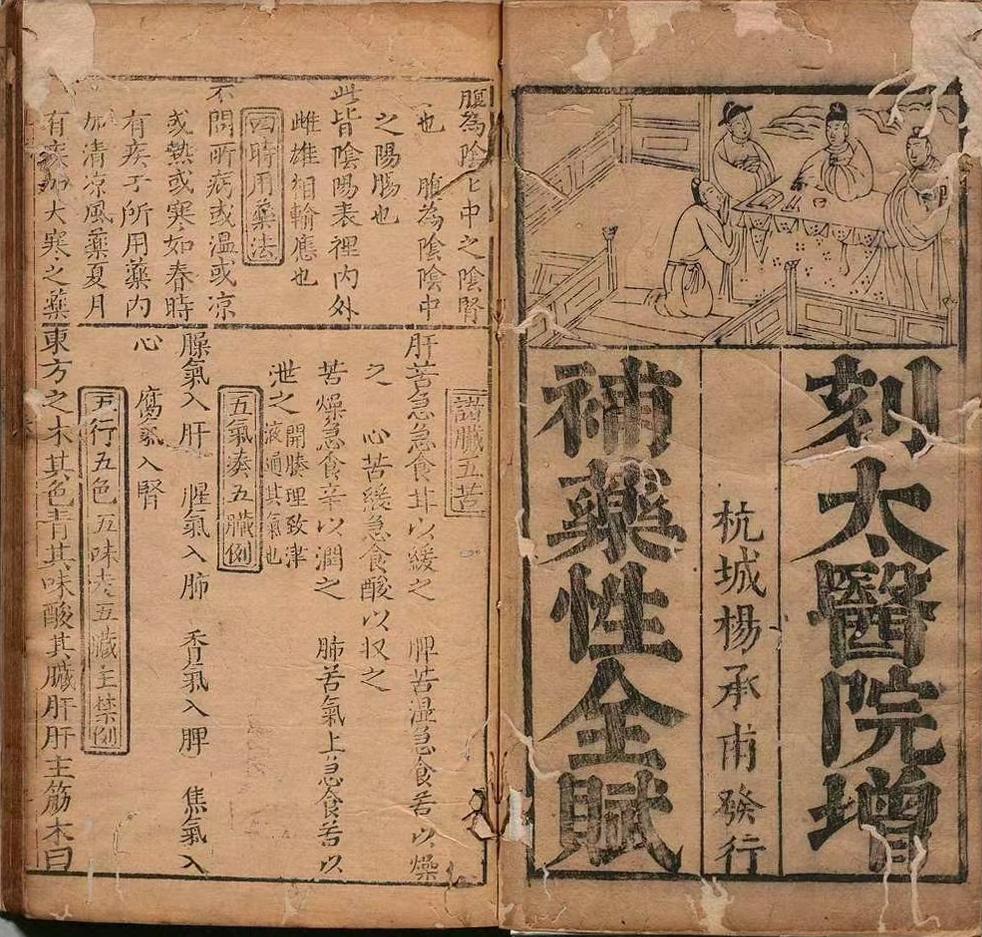 刻太醫院增
杭城楊承甫發行
補藥性全賦
腹為陰七中之陰腎
也　腹為陰陰中
之陽腸也
此皆陰陽表裡內外
雌雄相輸應也
四時用藥法
不問所病或温或凉
或熱或寒如春時
有疾于所用藥內
加清凉風藥夏月
有疾加大寒之藥
諸臟五苦
肝苦急急食甘以緩之　脾苦湿急食苦以燥
之　心苦緩急食酸以収之
苦燥急食辛以潤之　肺苦氣上急食苦以
泄之 開腠理致津
液通其氣也
五氣湊五臟例
臊氣入肝　腥氣入肺　香氣入脾　焦氣入
心　腐氣入腎
五行五色五味走五臟主禁例
東方之木其色青其味酸其臟肝肝主筋木曰